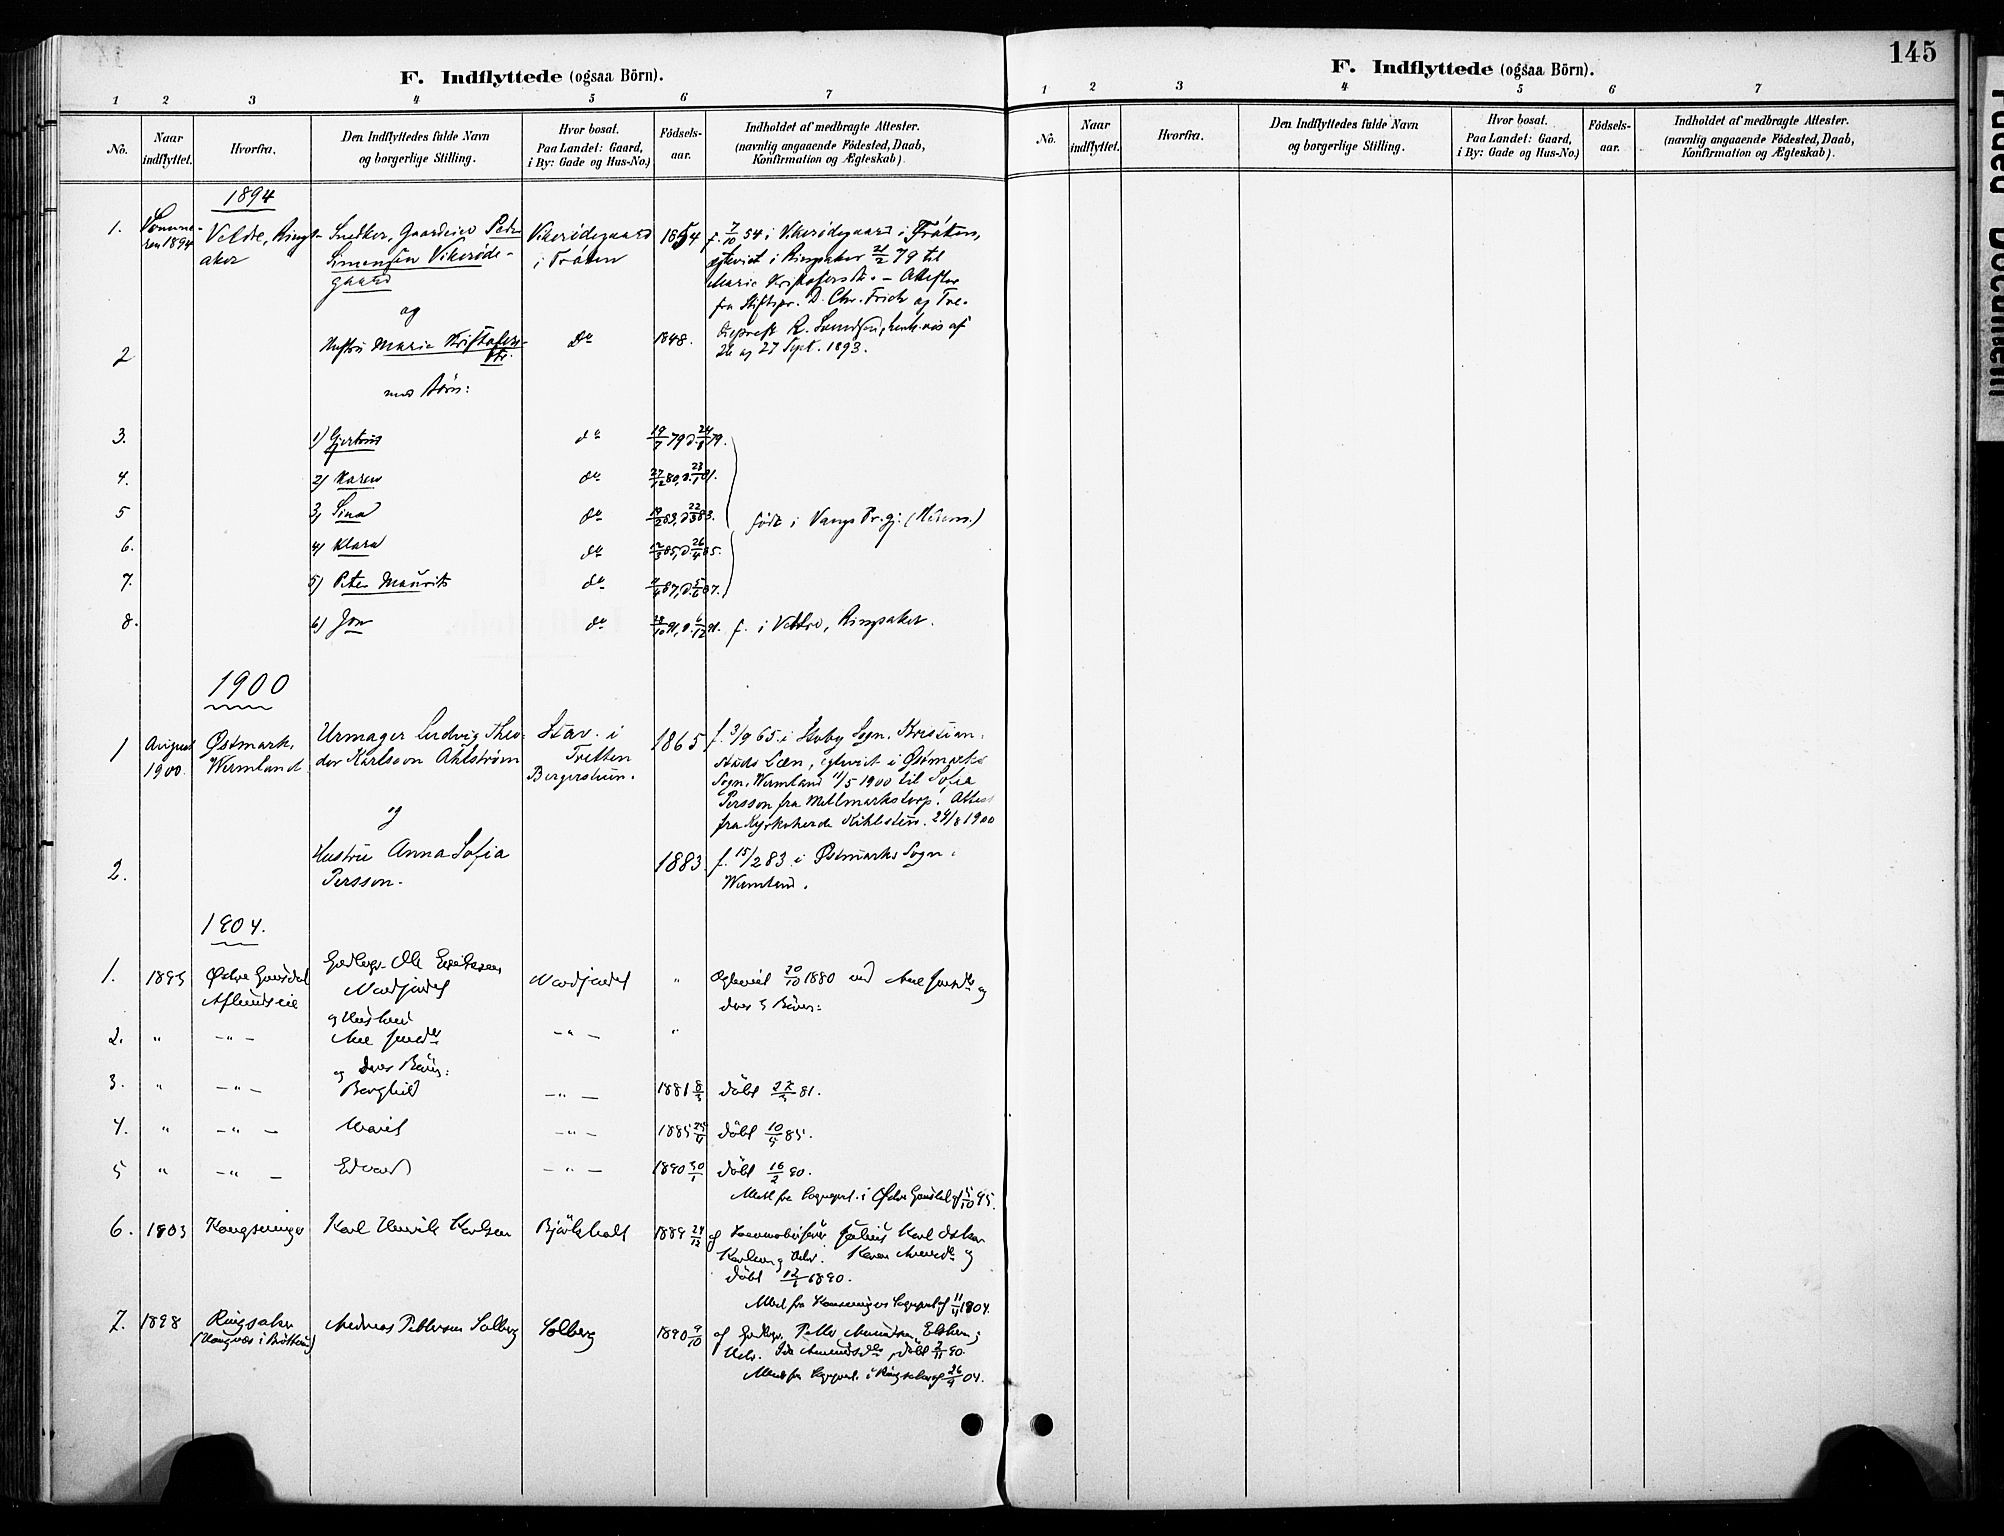 F. Indflyttede (ogsaa Börn).
1 2 3 4 5 6 7
No.
Naar indflyttet.
Hvorfra.
Den Indflyttedes fulde Navn og borgerlige Stilling.
Hvor bosat. Paa Landet: Gaard, i By: Gade og Hus-No.)
Födsels-aar.
Indholdet af medbragte Attester. (navnlig angaaende Födested, Daab, Konfirmation og Ægteskab).
1894
1. Sommeren 1894 Veldre, Ringsaker Snedker, Gaardeier Peder Simensen Vikerødegaard Vikerødegaard i Trøten 1854 f. 7/10 54 i Vikerødegaard i Trøten,
ægteviet i Ringsaker 21/2 79 til
Marie Kristofersdt. - Attester
fra Stiftspr. D. Chr. Frich og
26 og 27 Sept. 1893.
og
2 Hustru Marie Kristofersdtr. do 1848.
med Börn:
3. 1) do 19/7 79 d. 24/8 79.
4. 2) Karen do 27/12 80, d. 23/1 81.
5 3) Sina do 19/2 83, d. 22/3 83.
født i Vangs Pr.gj. (Hedem.)
6. 4) Klara do 12/3 85, d. 26/4 85.
7. 5) Peter Maurits do 11/4 87, d. 5/6 87.
8. 6) Jon do 28/10 91, d. 6/12 91. f. i Veldre, Ringsaker.
1900
1 August 1900 Østmark, Wermland Urmager Ludvig Theodor Karlsson Ahlström Stav i Tretten Bergersheim. 1865 f. 3/9 65 i Stoby Sogn, Kristianstads Læn, egteviet i Østmarks
Sogn, Wermland 11/5 1900 til Sofia
Persson fra Mellmarkstorp. Attest
fra Kyrkoherde Kihlsten. 24/8 1900
og
2. Hustru Anna Sofia Persson. 1883. f. 15/2 83 i Østmarks Sogn.
Wermland.
1904.
1. 1895 Østre Gausdal Ole Eriksen Nordjordet Nordjordet " Egteviet 20/10 1880 med Ane og
deres 3 Börn:
og Hustru
2. " -"- Ane -"- "
og Deres Börn:
3. " -"- Borghild -"- 1881 8/5 döbt 27/5 81.
4. " -"- Marit -"- 1885 döbt 10/5 85.
5 " -"- Edvard -"- 1890 30/1 döbt 16/2 90.
Meld fra Sogneprest. i Østre Gausdal af 5/10 95.
6. 1903 Kongsvinger Karl Henrik Karlsen Bjørkholt 1889 24/12 af Julius Karl Oskar
Karlsen og Hstr. Karen og
döbt 12/1 1890.
Meld fra Kongsvinger Sognepr. af 11/11 1904.
7. 1898 Ringsaker (Vangnæs i Brøttum) Andreas Pettersen Solberg Solberg 1890 9/10 af Petter Amundsen og
Hstr. Ida Amundsdtr, döbt 2/11 90.
Meld fra Sognepr. i Ringsaker af 26/9 04.
F. Indflyttede (ogsaa Börn).
145
1 2 3 4 5 6 7
No.
Naar indflyttet.
Hvorfra.
Den Indflyttedes fulde Navn og borgerlige Stilling.
Hvor bosat. Paa Landet: Gaard, i By: Gade og Hus-No.)
Födsels-aar.
Indholdet af medbragte Attester. (navnlig angaaende Födested, Daab, Konfirmation og Ægteskab).
Faded Document